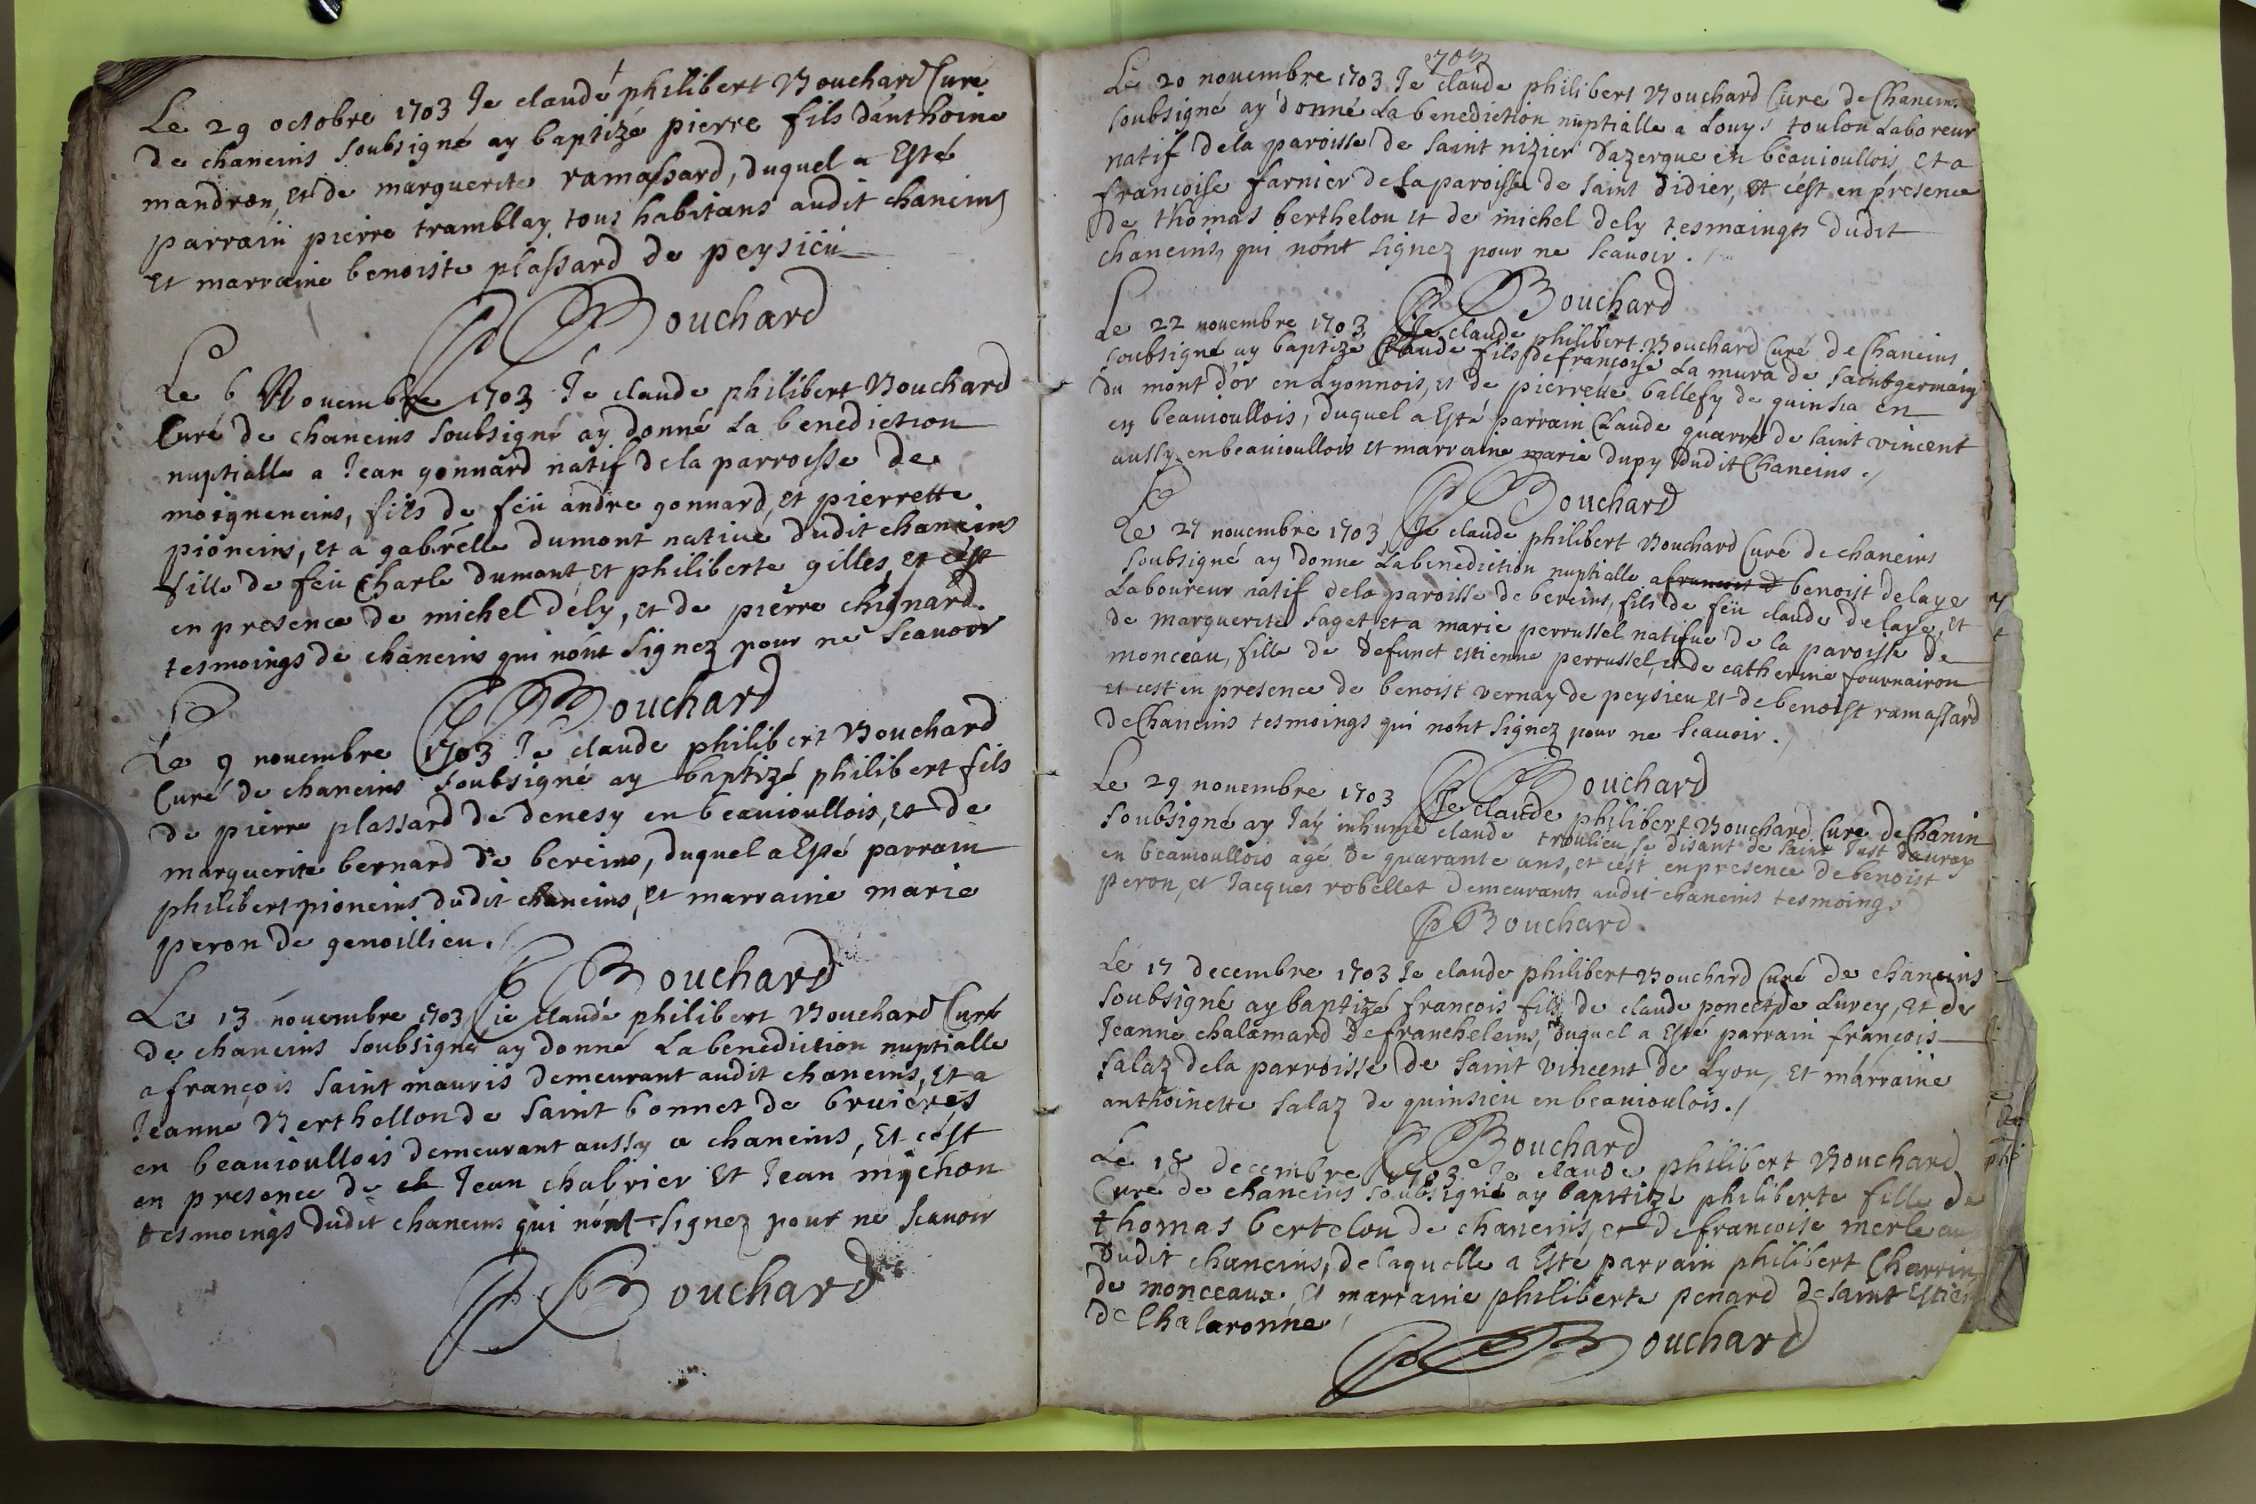 Le 29 octobre 1703 Je claude philibert Bouchard Curé
de chaneins soubsigné ay baptizé pierre fils d'anthoine
mandron, et de marguerite ramassard, duquel a Esté
parrain pierre tramblay tous habitans audit chaneins
et marraine benoiste plassard de peysieu
Bouchard
Le 6 Novembre 1703 Je claude philibert Bouchard
Curé de chaneins soubsigné ay donné La benediction
nuptialle a Jean gonnard natif de la parroisse de
moigneneins, fils de feu andre gonnard, et pierrette
pioneins, et a gabrelle dumont natiue dudit chaneins
fille de feu Charle dumont, et philiberte gilles, et c'est
en presence de michel dély, et de pierre chignard
tesmoings de chaneins qui nont signez pour ne scauoir
Bouchard
Le 9 nouembre 1703 Je claude philibert Bouchard
Curé de chaneins soubsigné ay baptizé philibert fils
de pierre plassard de denesy en beauioullois, et de
marguerite bernard de bereins, duquel a Esté parrain
philibert pioneins dudit chaneins, et marraine marie
peron de genoillieu.
Bouchard
Le 13 nouembre 1703 je claude philibert Bouchard Curé
de chaneins soubsigne ay donné La benediction nuptialle
a françois saint mauris demeurant audit chaneins, et a
Jeanne Berthellon de saint bonnet de bruieres
en beauioullois demeurant aussy a chaneins, Et c'est
en presence de Jean chabrier Et Jean michon
tesmoings dudit chaneins qui n'ont signez pour ne scauoir
Bouchard
1703
Le 20 nouembre 1703 Je claude philibert Bouchard Curé de Chaneins
soubsigné ay donné La benediction nuptialle a Louys toulon Laboreur
natif de la paroisse de saint nizier d'azergue en beauioullois, et a
francoise farnier de la paroisse de saint didier, et c'est en presence
de thomas berthelon et de michel dely tesmaings dudit
chaneins, qui n'ont signez pour ne scauoir.
Bouchard
Le 22 nouembre 1703 Je claude philibert Bouchard Curé de Chaneins
soubsigné ay baptize Claude fils de françoise La mura de saint germain
du mont d'or en Lyonnois, et de pierreue ballefy de quinsia en
en beauioullois, duquel a Esté parrain Claude quarré de saint vincent
aussy en beauioullois et marraine marie dupuy dudit Chaneins.
Bouchard
Le 27 nouembre 1703 Je claude philibert Bouchard Curé de chaneins
soubsigné ay donne La benediction nuptialle a francois d benoist delaye
Laboureur natif de la paroisse de bereins, fils de feu claude delaye, et
de marguerite saget, et a marie perrussel natifue de la paroisse de
monceau, fille de defunct estienne perrussel, et de catherine fournairon
et cest en presence de benoist vernay de peysieu et de benoist ramassard
de Chaneins tesmoings qui nont signez pour ne scauoir.
Bouchard
Le 29 nouembre 1703 Je claude philibert Bouchard Curé de Chanin
soubsigné ay Jay inhumé claude troulieu se disant de saint Just d'auray
en beauioullois agé de quarante ans, et c'est en presence de benoist
peron, et Jacques robellet demeurants audit chaneins tesmoings
Bouchard.
Le 17 decembre 1703 Je claude philibert Bouchard Curé de chaneins
soubsigné ay baptizé françois fils de claude poncet de Lurcy, et de
Jeanne chalamard de francheleins, duquel a Esté parrain françois
salaz de la parroisse de saint vincent de Lyon, Et marraine
anthoinette salaz de quinsieu en beauioulois.
Bouchard
Le 18 decembre 1703 Je claude philibert Bouchard
Curé de chaneins soubsigné ay baptizé philiberte fille de
thomas bertelon de chaneins, et de francoise merle au
dudit chaneins, de laquelle a Esté parrain philibert Charrin
de monceaux, et marraine philiberte penard de saint Estien
de Chalaronne
Bouchard